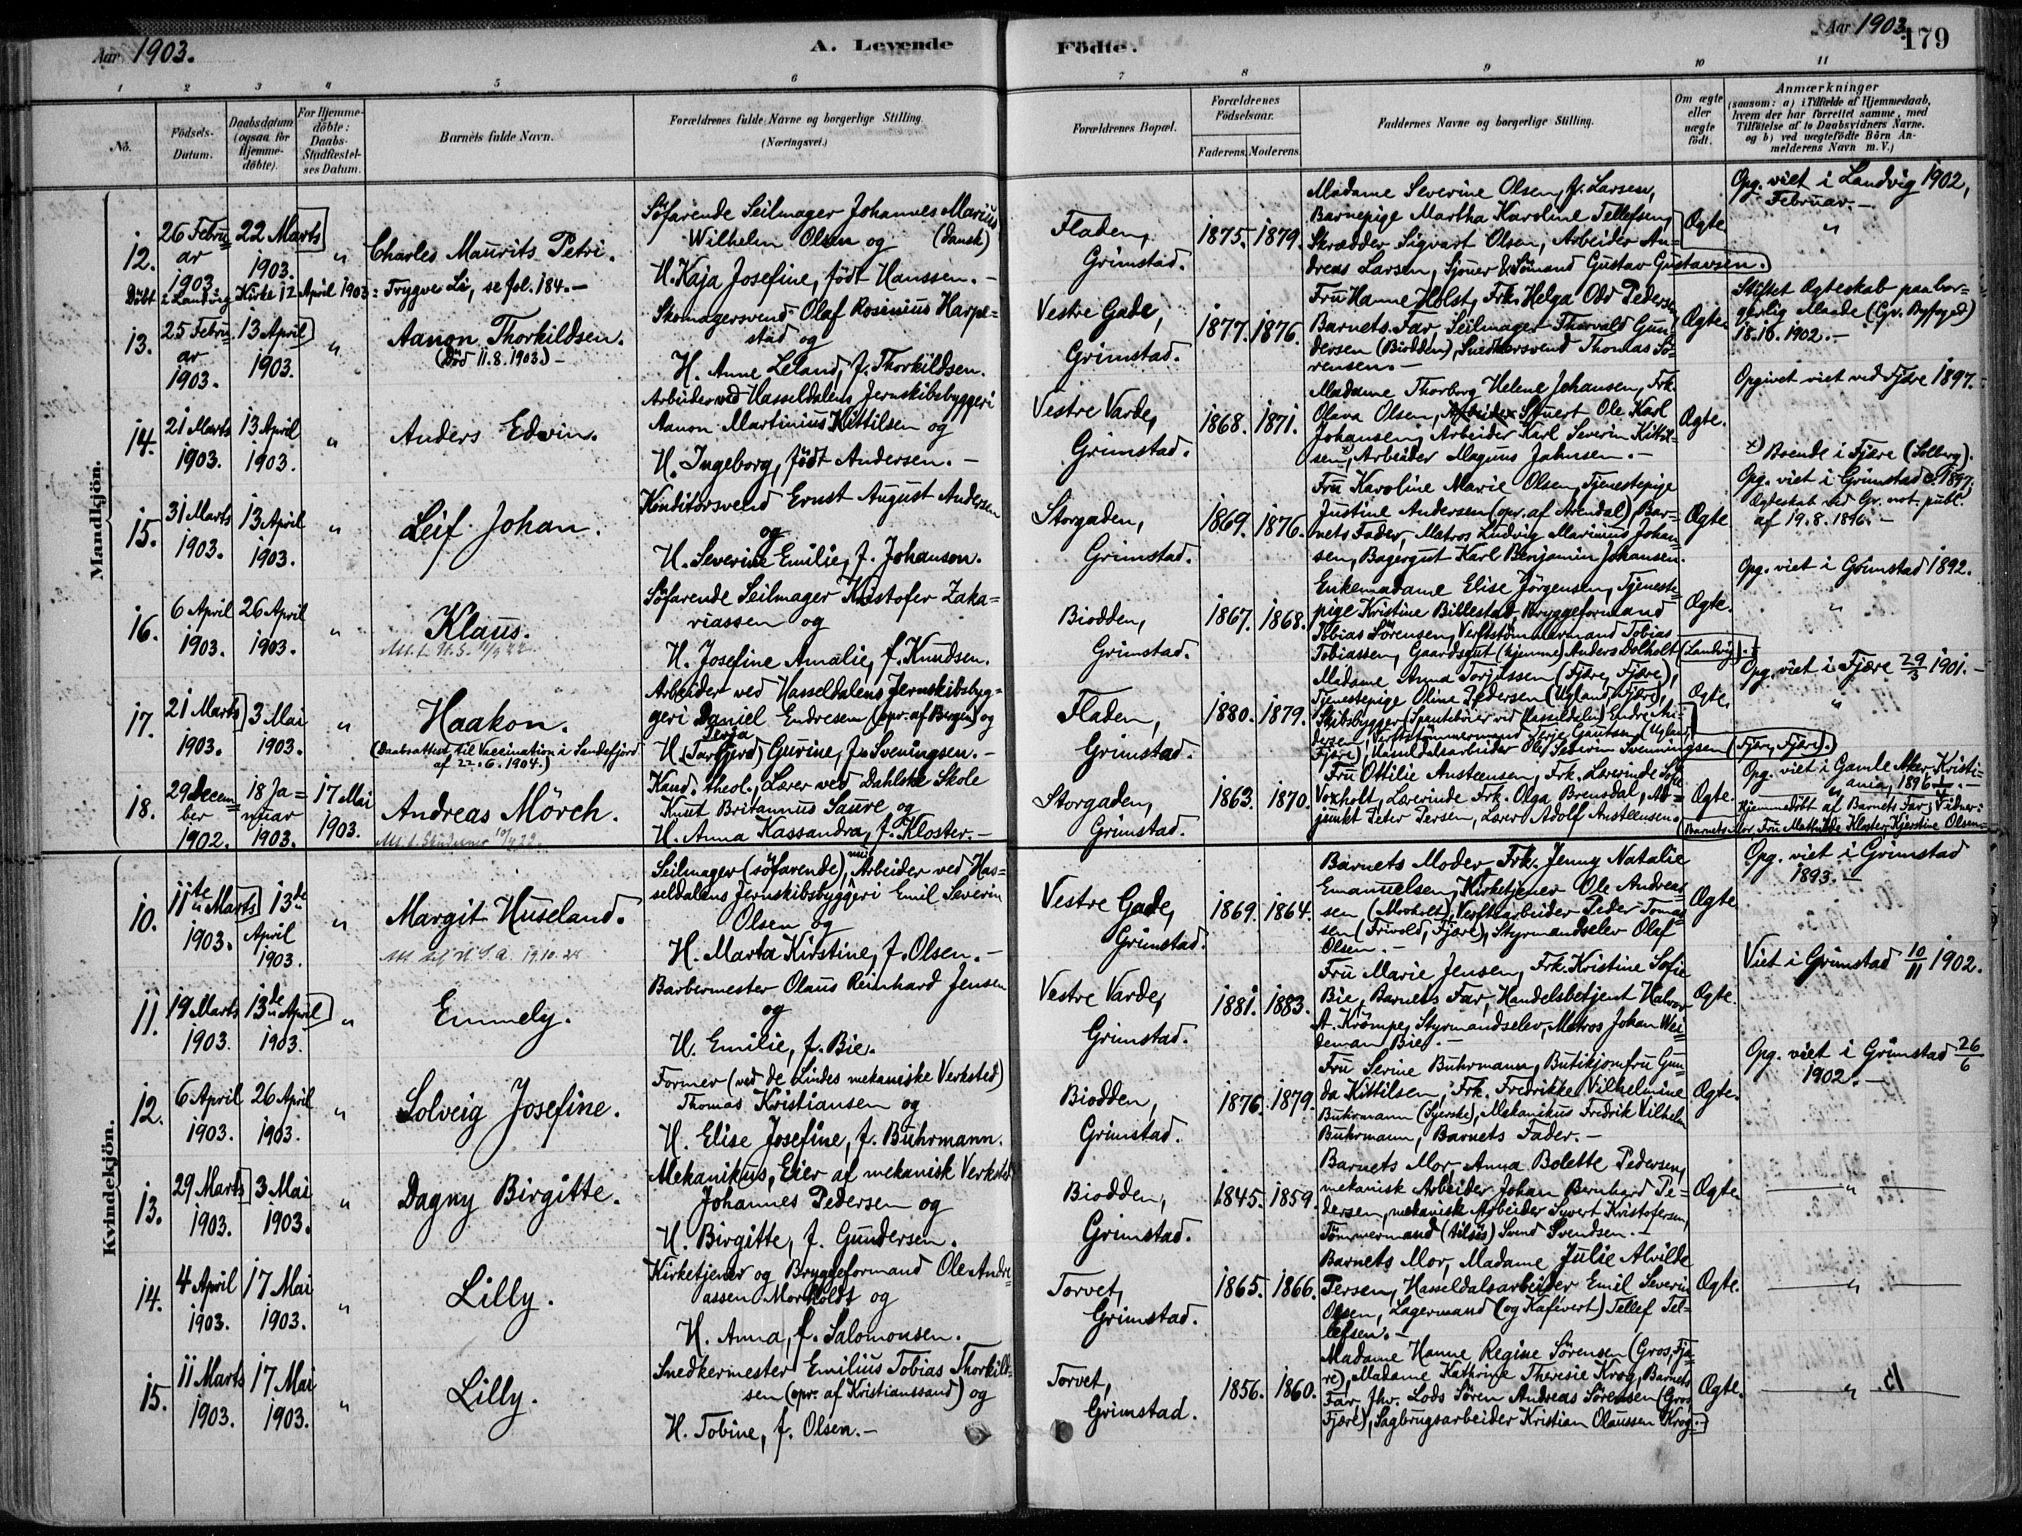 Aar 1903.
A. Levende
Födte.
Aar 1903.
179
1 2 3 4 5 6 7 8 9 10 11
No.
Födsels-
Datum.
Daabsdatum
(ogsaa for
Hjemme-
döbte).
For Hjemme-
döbte:
Daabs-
Stadfæstel-
ses Datum.
Barnets fulde Navn.
Forældrenes fulde Navne og borgerlige Stilling.
(Næringsvei.)
Forældrenes Bopæl.
Forældrenes
Födselsaar.
Faderens. Moderens.
Faddernes Navne og borgerlige Stilling.
Om ægte
eller
uægte
født.
Anmærkninger
(saasom: a) i Tilfælde af Hjemmedaab,
hvem der har forrettet samme, med
Tilföielse af to Daabsvidners Navne,
og b) ved uægtefödte Börn An-
melderens Navn m. V.)
Mandkjön.
12.
26 Febru=
ar
1903.
22 Marts
1903.
"
Charles Maurits Petri.
Söfarende Seilmager Johannes Marius
Wilhelm Olsen og (Dansk)
H. Kaja Josefine, födt Hanssen. -
Fladen,
Grimstad.
1875. 1879.
Madame Severine Olsen, f. Larsen,
Barnepige Martha Karoline Tellefsen,
Skrædder Sigvart Olsen, Arbeider An-
dreas Larsen, Sjouer & Sömand Gustav Gustavsen.
Ægte
Opg. viet i Landvig 1902,
Februar. -
"
Döbt i Landvig Kirke 12 April 1903: Trygve Li, se fol. 184. -
13.
25 Febru=
ar
1903.
13 April
1903.
"
Aanon Thorkildsen.
(Död 11.8.1903.) -
Skomagersvend Olaf Rosinius Harpe=
stad og
H. Anne Leland, f. Thorkildsen.
Vestre Gade,
Grimstad.
1877. 1876.
Fru Hanne Holst, Frk. Helga Odd Pedersen,
Barnets Far, Seilmager Thorvald Gun-
dersen (Biodden), Snedkersvend Thomas Sö-
rensen. -
Ægte.
Stiftet Ægteskab paa bor=
gerlig Maade (Gr. Byfoged)
18.10.1902. -
14.
21 Marts
1903.
13 April
1903.
"
Anders Edvin.
Arbeider ved Hasseldalens Jernskibsbyggeri
Aanon Martinius Kittilsen og
H. Ingeborg, födt Andersen. -
Vestre Varde,
Grimstad.
1868. 1871.
Madame Thorborg Helene Johansen, Frk.
Olava Olsen, Arbeider Stuert Ole Karl
Johansen, Arbeider Karl Severin Kittil-
sen, Arbeider Magnus Jahnsen. -
Ægte.
Opgivet viet ved Fjære 1897. -
x) Boende i Fjære (Solberg).
15.
31 Marts
1903.
13 April
1903.
"
Leif Johan.
Konditorsvend Ernst August Andersen
og
H. Severine Emilie, f. Johanson.
Storgaden,
Grimstad.
1869. 1876.
Fru Karoline Marie Olsen, Tjenestepige
Justine Andersen (opr. af Arendal), Bar-
nets Fader, Matros Ludvig Marinius Johan-
sen, Bagergut Karl Benjamin Johansen.
Ægte
Opg. viet i Grimstad 1897.
Ægteskab ved Gr. not. publ.
af 19.8.1896. -
16.
6 April
1903.
26 April
1903.
"
Klaus.
Söfarende Seilmager Kristofer Zaka=
riassen og
H. Josefine Amalie, f. Knudsen.
Biodden,
Grimstad.
1867. 1868.
Enkemadame Elise Jörgensen, Tjeneste-
pige Kristine Billestad, Bryggeformand
Tobias Sörensen, Verftstömmermand Tobias
Tobiassen, Gaardsgut (hjemme) Anders Dolholt (Landvig). -
Ægte.
Opg. viet i Grimstad 1892.
"
17.
21 Marts
1903.
3 Mai
1903.
"
Haakon.
(Daabsattest til Vaccination i Sandefjord
af 22.6.1904.)
Arbeider ved Hasseldalens Jernskibsbyg-
geri Daniel Endresen (opr. af Bergen) og
Terja
H. (Targjerd) Gurine, f. Sveningsen. -
Fladen,
Grimstad.
1880. 1879.
Madame Anna Torjussen (Fjære, Fjære),
Tjenestepige Oline Pedersen (Ugland, Fjære),
Skibsbygger (Spanteböier ved Hasseldalen) Endre An-
dersen, Verftstömmermand Terje Gautsen (Ugland,
Fjære), Hasseldalsarbeider Ole Severin Svenningsen (Fjære, Fjære).
Ægte.
Opg. viet i Fjære 29/3 1901. -
"
18.
29 Decem=
ber
1902.
18 Ja=
nuar
1903.
17 Mai
1903.
Andreas Mörch.
Kand. theol., Lærer ved Dahlske Skole
Knut Britannus Saure og
H. Anna Kassandra, f. Kloster. -
Storgaden,
Grimstad.
1863. 1870.
Fru Ottilie Austeensen, Frk. Lærerinde
Voxholt, Lærerinde Frk. Olga Brensdal, Ad-
junkt Peter Persen, Lærer Adolf Austeensen.
Ægte.
Opg. viet i Gamle Aker, Kristi-
ania, 1896. -
Hjemmedöbt af Barnets Far; Vidner:
Barnets Mor Fru Mathilde Kloster, Kjerstine Olsen.
Kvindekjön.
10.
11te Marts
1903.
13de
April
1903.
"
Margit Huseland.
Seilmager (söfarende), nu Arbeider ved Has=
seldalens Jernskibsbyggeri Emil Severin
Olsen og
H. Marta Kirstine, f. Olsen. -
Vestre Gade,
Grimstad.
1869. 1864.
Barnets Moder, Frk. Jenny Natalie
Emanuelsen, Kirketjener Ole Andreas-
sen (Morholt), Verftsarbeider Peder Tomas-
sen (Frivold, Fjære), Styrmandselev Olaf
Olsen. -
Ægte
Opg. viet i Grimstad
1893. -
11.
19 Marts
1903.
13de April
1903.
"
Emmely.
Barbermester Olaus Reinhard Jensen
og
H. Emilie, f. Bie.
Vestre Varde,
Grimstad.
1881. 1883.
Fru Marie Jensen, Frk. Kristine Sofie
Bie, Barnets Far, Handelsbetjent Halvor
A. Krömpe, Styrmandselev, Matros Johan Wei-
deman Bie. -
Ægte.
Viet i Grimstad 10/11 1902.
12.
6 April
1903.
26 April
1903.
"
Solveig Josefine.
Former (ved de Lindes mekaniske Verksted)
Thomas Kristiansen og
H. Elise Josefine, f. Buhrmann.
Biodden,
Grimstad.
1876. 1879.
Fru Serine Buhrmann, Butikjomfru Gun-
da Kittilsen, Frk. Fredrikke Vilhelmine
Buhrmann (Syerske), Mekanikus Fredrik Vilhelm
Buhrmann, Barnets Fader. -
Ægte.
Opg. viet i Grimstad 26/6
1902. -
13.
29 Marts
1903.
3 Mai
1903.
"
Dagny Birgitte.
Mekanikus, Eier af mekanisk Verksted
Johannes Pedersen og
H. Birgitte, f. Gundersen.
Biodden,
Grimstad.
1845. 1859.
Barnets Mor, Anna Bolette Pedersen,
mekanisk Arbeider Johan Bernhard Pe-
dersen, mekanisk Arbeider Syvert Kristofersen,
Tömmermand (tilsjös) Svend Svendsen. -
Ægte.
"
14.
4 April
1903.
17 Mai
1903.
"
Lilly.
Kirketjener og Bryggeformand Ole Andre=
assen Morholdt og
H. Anna, f. Salomonsen.
Torvet,
Grimstad.
1865. 1866.
Barnets Mor, Madame Julie Alvilde
Persen, Hasseldalsarbeider Emil Severin
Olsen, Lagermand (og Kafévert) Tellef Tel-
lefsen. -
Ægte.
"
15.
11 Marts
1903.
17 Mai
1903.
"
Lilly.
Snedkermester Emilius Tobias Thorkild-
sen (opr. af Kristianssand) og
H. Tobine, f. Olsen. -
Torvet,
Grimstad.
1856. 1860.
Madame Hanne Regine Sörensen (Gros, Fjæ-
re), Madame Kathrine Theresie Krog, Barnets
Far, fhv. Lods Sören Andreas Sörensen (Gros,
Fjære), Sagbrugsarbeider Kristian Olaussen Krog. -
Ægte.
"